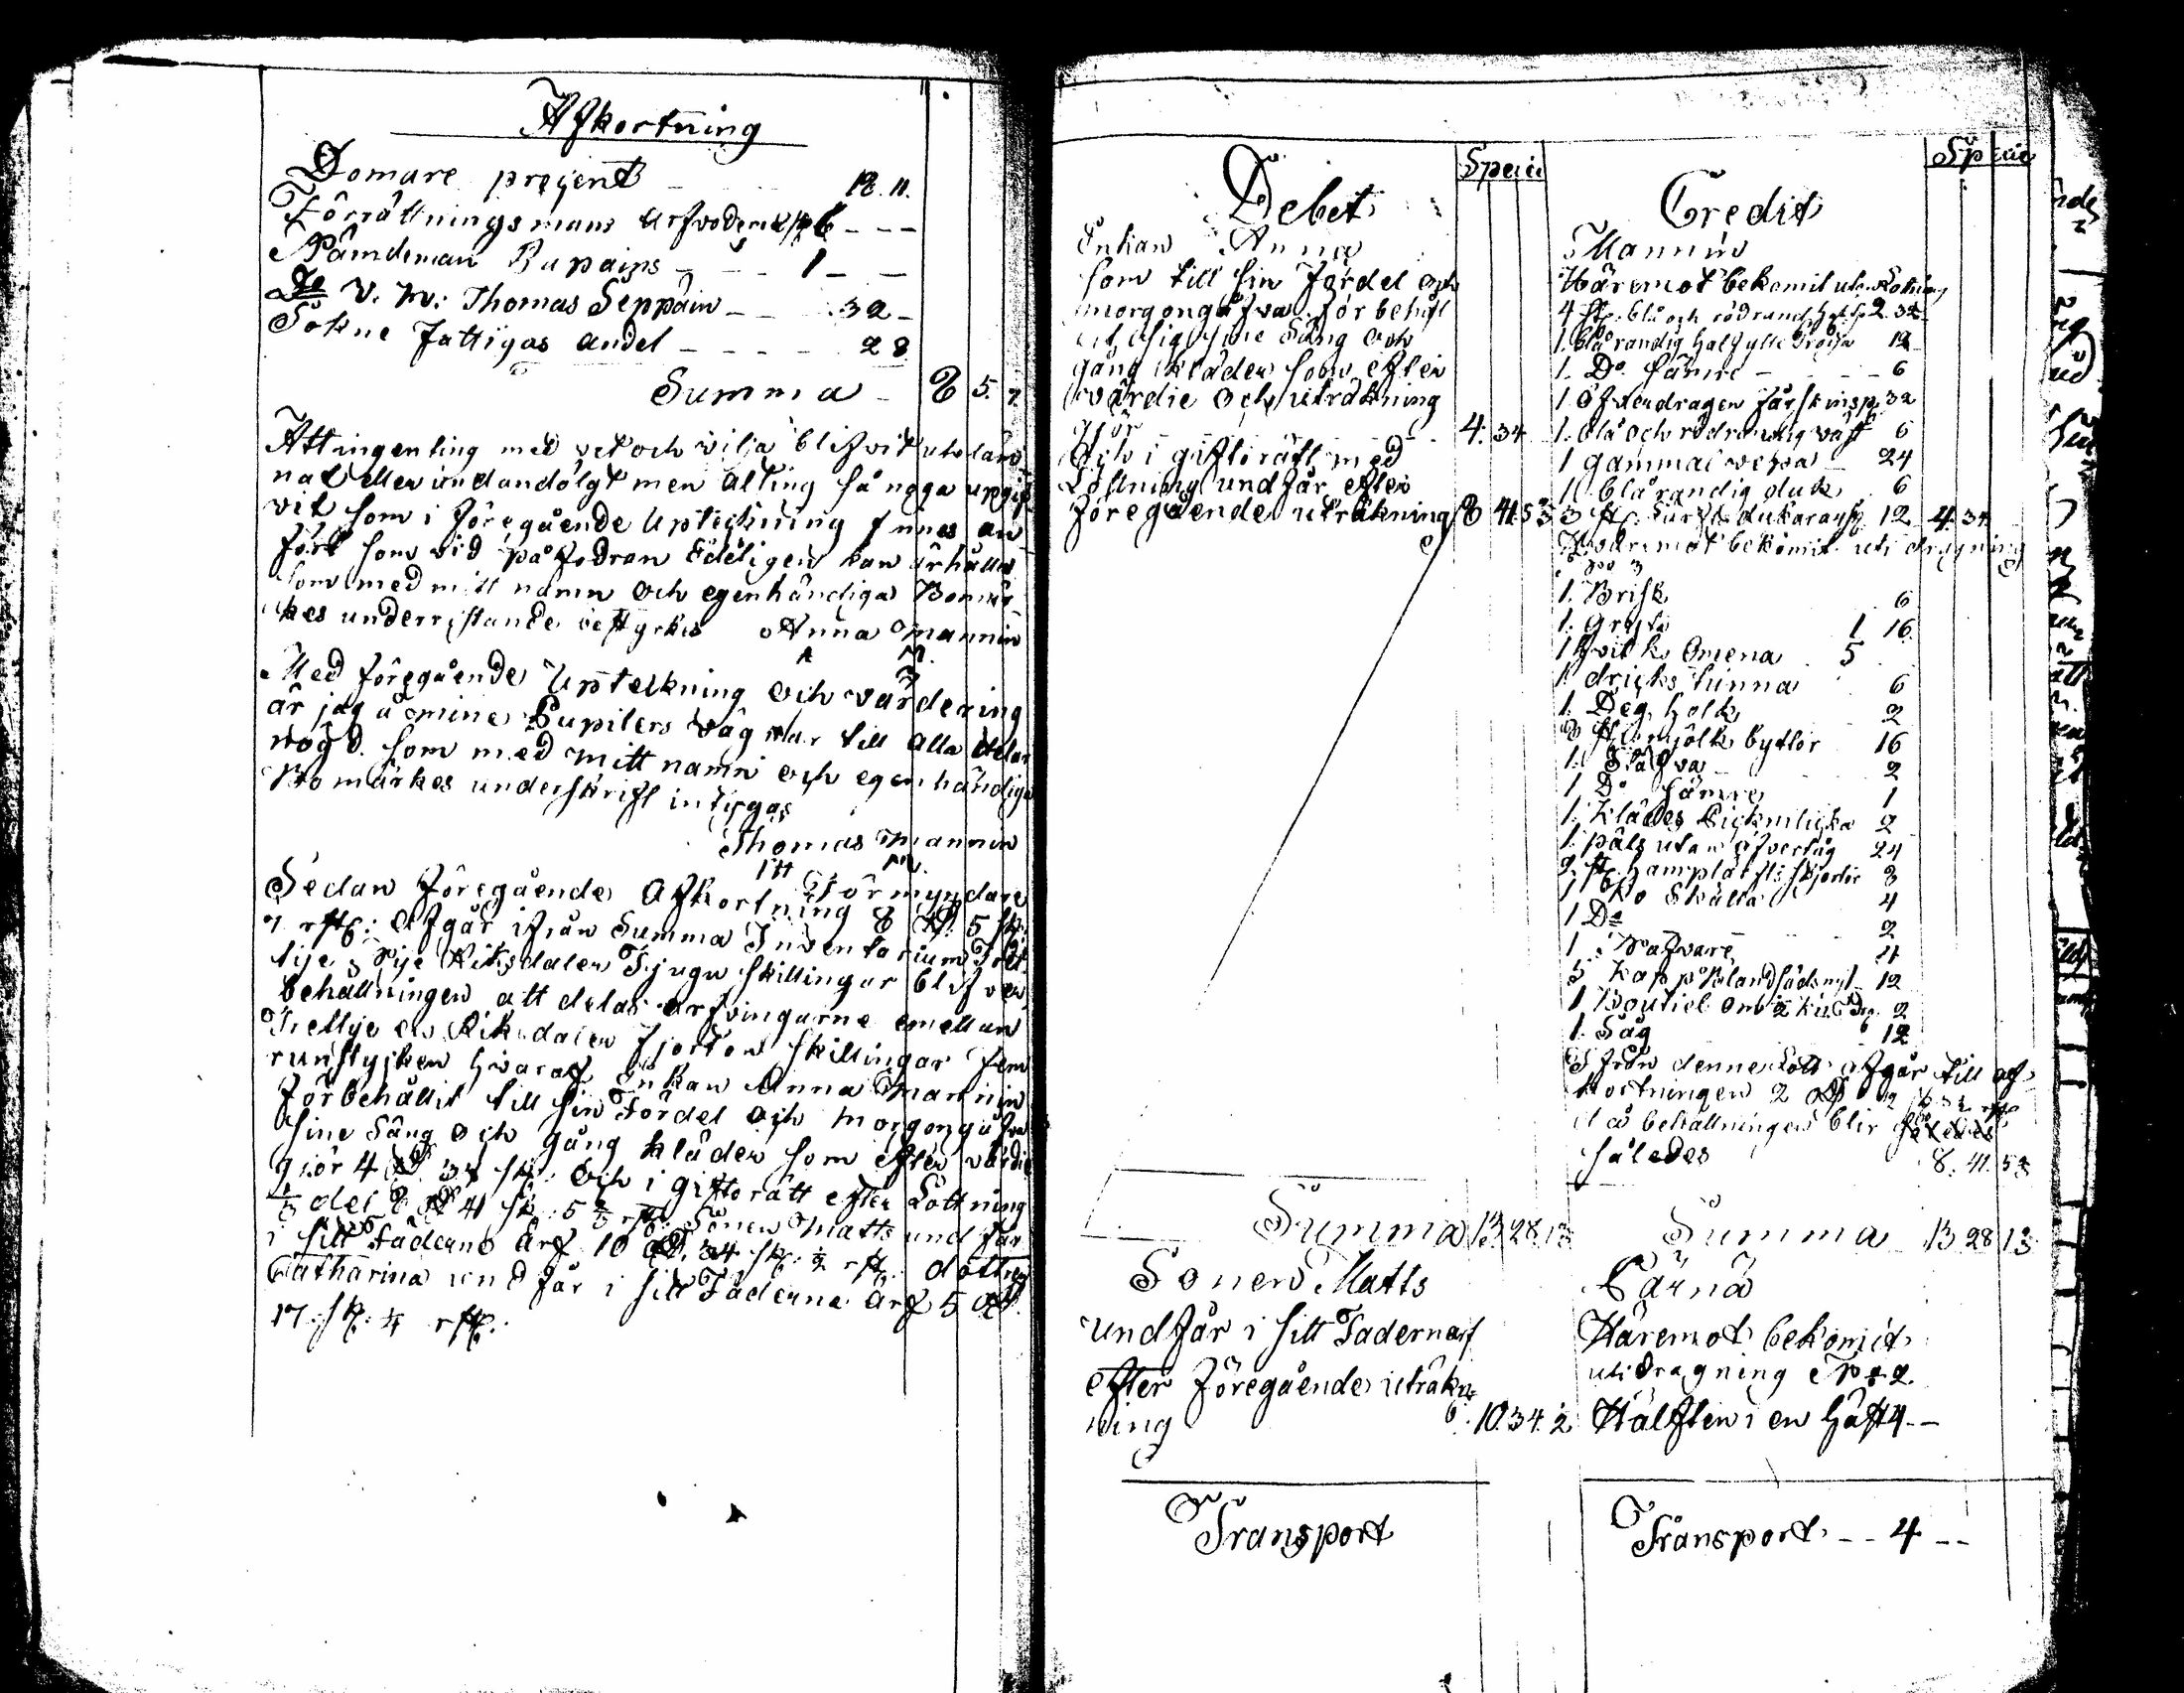 Afkortning
Domare prosent - - - 12. 11.
Förrättningsmans Arfvode 6 - - -
Nämdeman Rupains - - - 1 - -
Do V. W: Thomas Seppäin - - 32 -
Sokne fattigas andel - - - - 28
Summa - 8 5. 7.
Att ingenting med vet och vilja blifvit uteläm
nat eller undandölgt men alting så noga upgif
vit som i föregående Upteckning finnes an
fört som vid påfodran Edeligen kan ärhållas
som med mitt namn och egenhändiga Bomär
kes underristande bestyrkes Anna Mannin
Med föregående Upteckning och värdering
är jag å mine Pupilers vägnar till alla delar
nögd som med mitt namn och egenhändiga
Bomärkes underskrift intygas
Thomas Mannin
Förmyndare
Sedan föregående Afkortning 8 Rd. 5 sk.
7 rst: Afgår ifrån Summa Inventarium
tije Rijksdaler Tjugu skillingar blifver
behållningen att delas arfvingarne emellan
Trettije en Riksdaler fjorton skillingar fem
runstycken hvaraf Enkan Anna Mannin
förbehållit till sin Fördel och morgongåfva
sine Säng och Gång kläder som efter värdie
gjör 4 Rd 34 sk: och i giftorätt efter Lottning
1/3 del 8 Rd 41 sk: 5 2/3 rst: Sonen Matts undfår
i sitt Fäderne Arf 10 Rd. 34 sk: 2 rst: dottren
Catharina undfår i sitt Fäderne Arf 5 Rd.
17. sk: 4 rst:
Debet
Specie
Enkan Anna
som till sin fördel och
morgongåfva förbehål
lit sig sine Säng och
gång kläder som efter
värdie och uträkning
gjör - - - 4. 34
Och i giftorätt med
Lottning undfår efter
föregående uträkning 8 41 5 2/3
Summa 13. 28. 13
Sonen Matts
undfår i sitt Fädernearf
efter föregående uträkn
ing 10. 34. 2
Transport
Credit
Specie
Mannin
Häremot bekomit utan Lottning
4 st: blå och rödrand 2. 32
1. blårandig halfylle Tröija 12
1. Do Sämre - - - 6
1 Öfverdragen fårskinsp. 32
1. blå och rödrandig väst 6
1 gammal 24
1 blårandig duk 6
3 st: dukar 12 4. 34
Hvaremot bekomit uti dragning
No 3
1. Brisk 6
1. Gryta 1 16.
1 qvik Omena 5
1 dricks tunna 6
1. Deg holk 2
8 st: mjölk byttor 16
1. Stäfva 2
1 Do Sämre 1
1. Klädes 2
1. päls utan öfvertåg 24
2. st: hamplärfts skjortor 3
1 Ko skälla 4
1 Do 2
1 4
5 Kapp blandsäds 12
1 Boutiel 2
1. Såg 12
Ifrån denne Lott afgår till af
kortningen 2 Rd
då behållningen blir
således 8. 41. 5 2/3
Summa 13 28 13
Pärnä
Häremot bekomit
uti dragning No 2.
Hälften i en häst 4 - -
Transport - - 4 - -